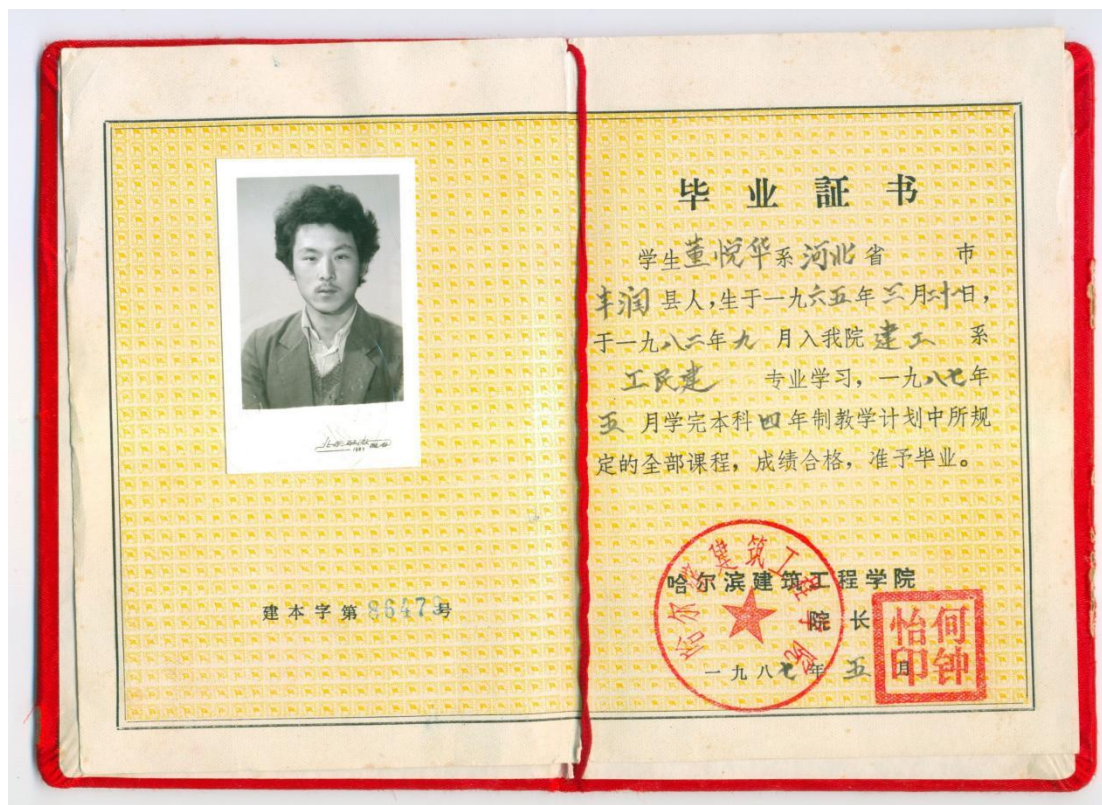 毕业証书
学生董悦华系河北省 市
丰润县人,生于一九六五年三月二十日,
于一九八二年九月入我院建工系
工民建 专业学习,一九八七年
五月学完本科四年制教学计划中所规
定的全部课程,成绩合格,准予毕业。
哈尔滨建筑工程学院
院长
一九八七年五月
哈尔滨建筑工程学院
何钟
怡印
建本字第 号